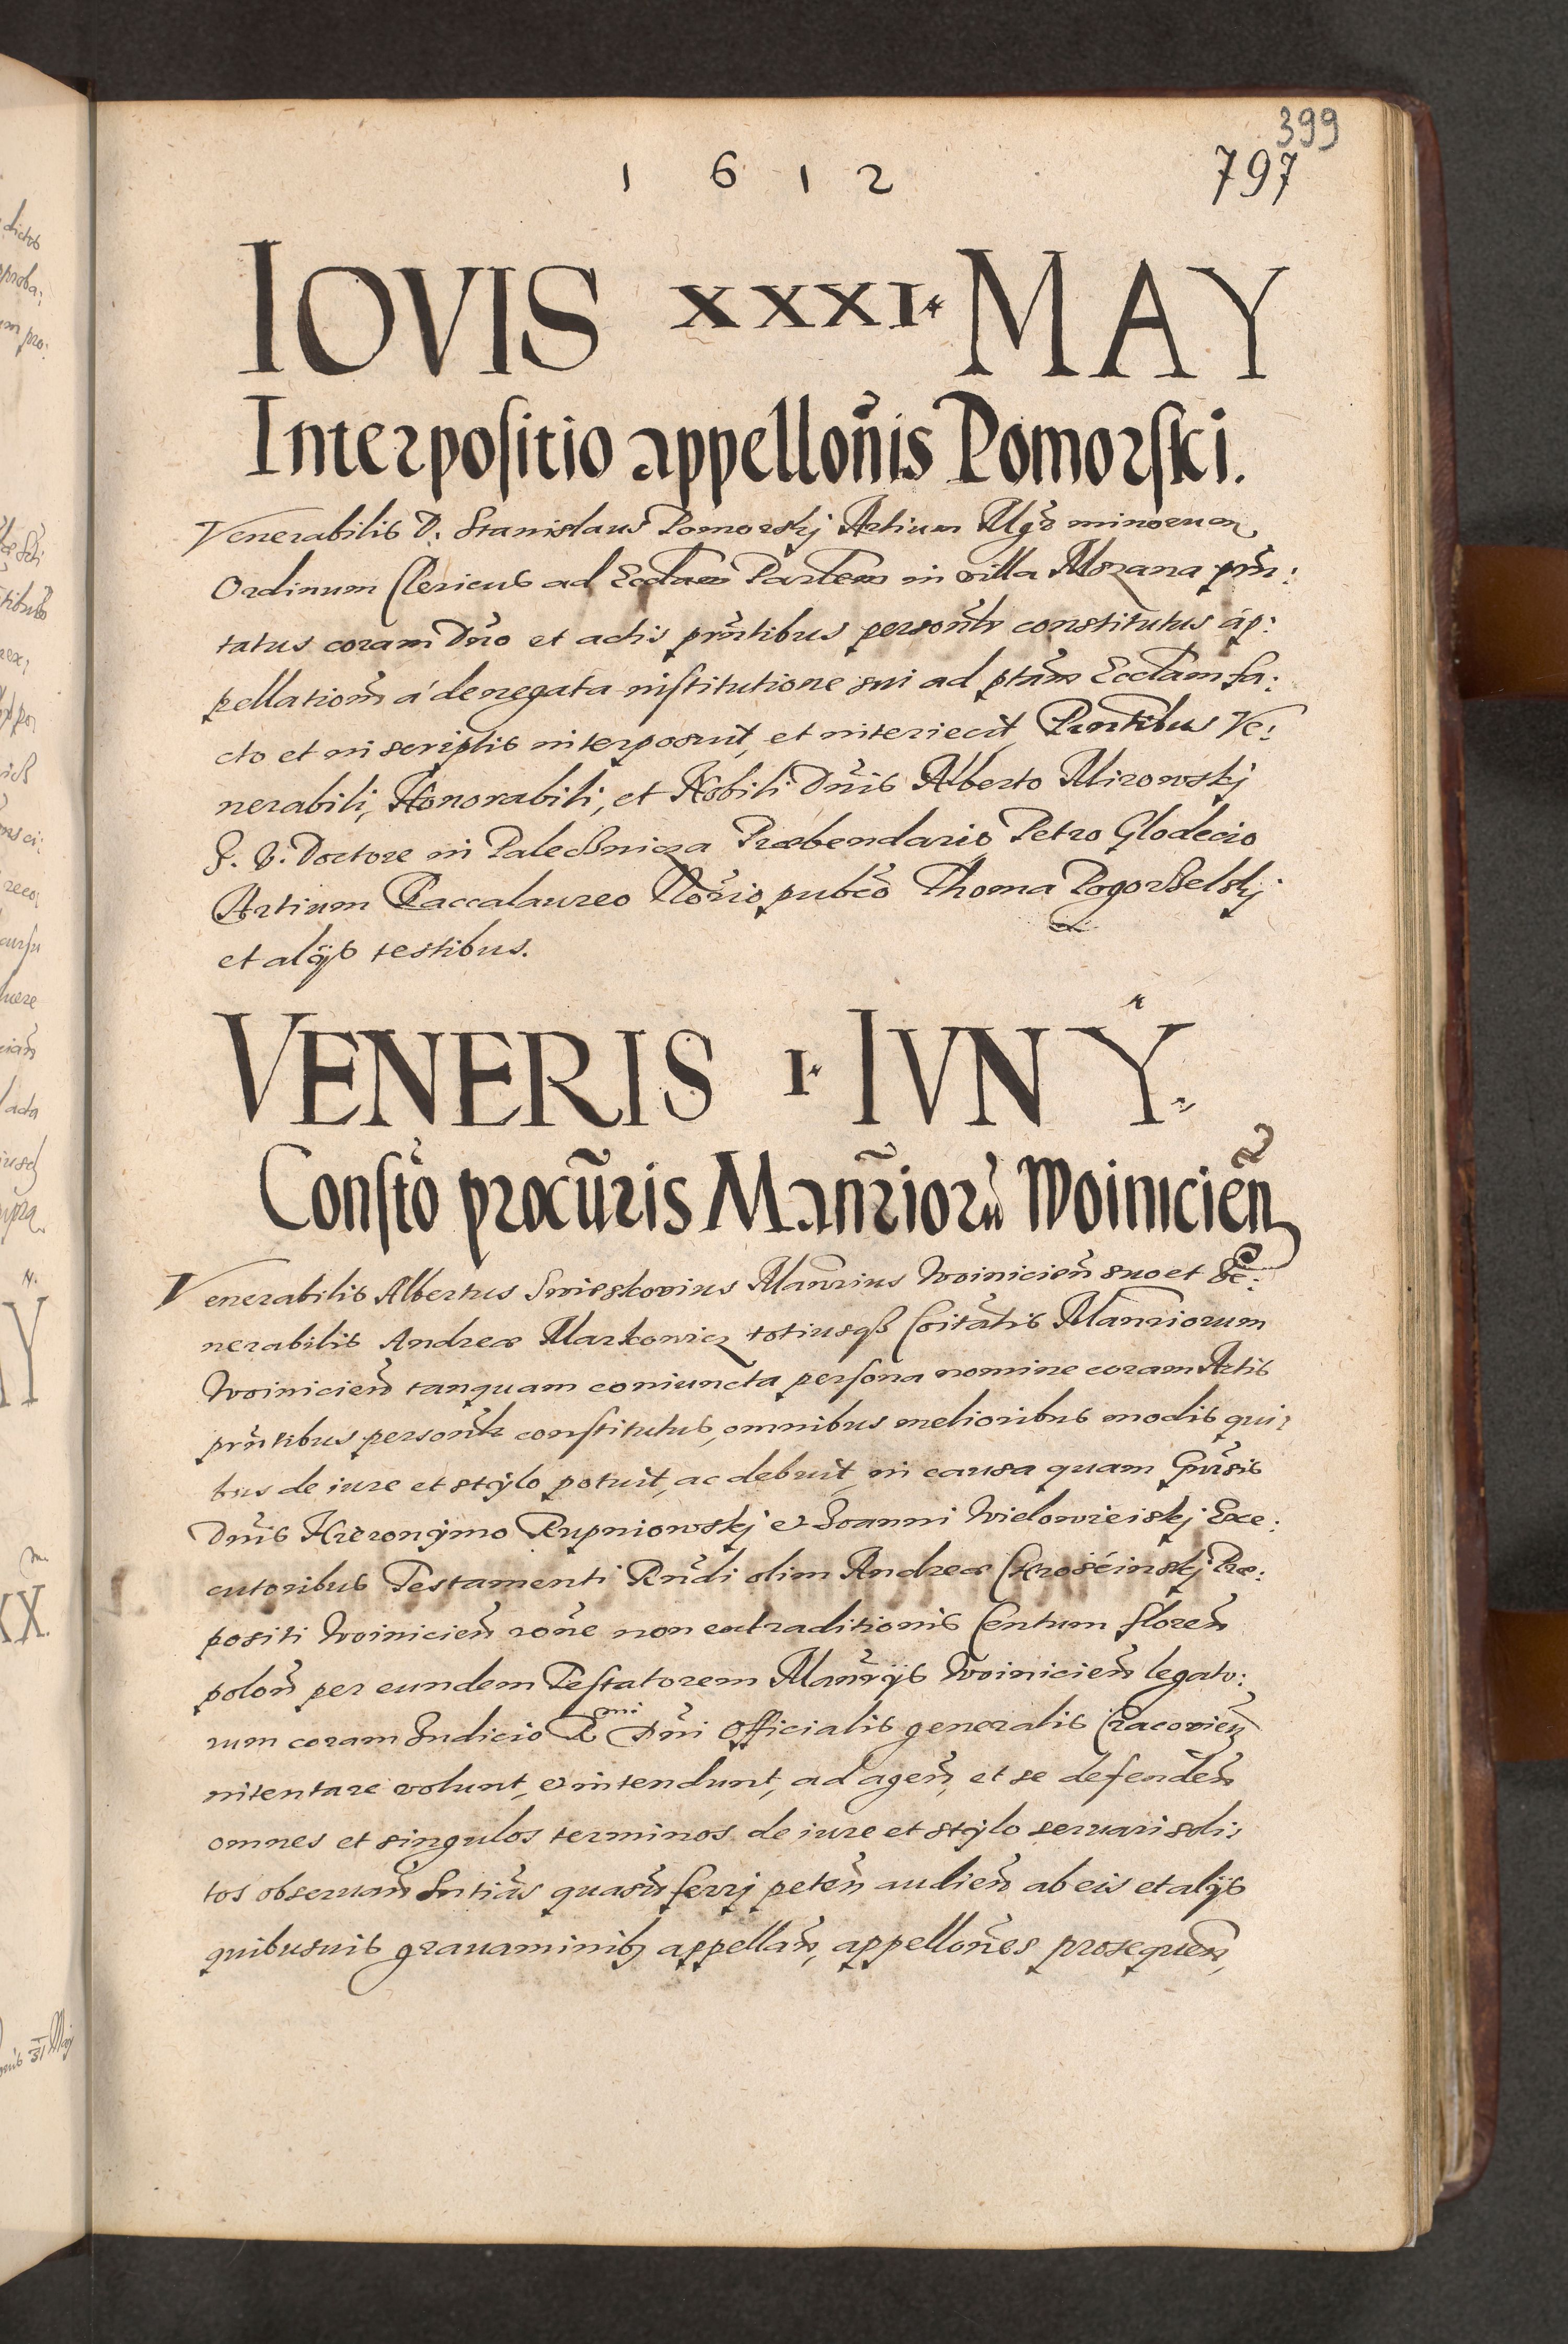 399
1 6 1 2
797
IOVIS XXXI. MAY
Interpositio appellõnis Pomorski.
Venerabilis D. Stanislaus Pomorskj Artium Mgr̃ minorum
Ordinum Clericus ad Ecclãm Parlem in villa Mozana pñ:
tatus coram Dño et actis pñtibus persoñlr constitutus ap:
pellationẽ á denegata institutione sui ad ptãm Ecclãm fa:
cto et in scriptis interposuit, et interiecit Pñtibus Ve:
nerabili, Honorabili, et Nobili Dñis Alberto Mirowskj
J. V. Doctore in Palecznicza Præbendario, Petro Glodecio
Artium Baccalaureo Nõrio publ̃co Thoma Pogorzelskj
et alÿs testibus.
VENERIS I. IVNY
Constõ procũris Manr̃iorũ Woiniciẽn
Venerabilis Albertus Swieskovius Manr̃ius Woiniciẽn suo et Ve:
nerabilis Andreæ Markowicz totiusqȝ Coĩtatis Manr̃iorum
Woiniciẽn tanquam coniuncta persona nomine coram Actis
pñtibus persoñlr constitutus, omnibus melioribus modis qui:
bus de iure et stÿlo potuit, ac debuit, in causa quam Gñsis
Dñis Hieronÿmo Rupniowskj & Joanni Wielowieiskj Exe:
cutoribus Testamenti Rñdi olim Andreæ Chrościnskj Præ:
positi Woiniciẽn rõne non extraditionis Centum florẽn
polõn per eundem Testatorem Manr̃ijs Woiniciẽn legato:
rum coram Iudicio R mi Dñi Officialis generalis Cracoviẽn
intentare volunt, & intendunt, ad agẽn, et se defendẽn
omnes et singulos terminos de iure et stÿlo servari soli:
tos observañ Sntiãs quasuis ferrj petẽn audiẽn ab eis et alÿs
quibusuis grauaminibȝ appellãn, appellõnes prosequẽn,